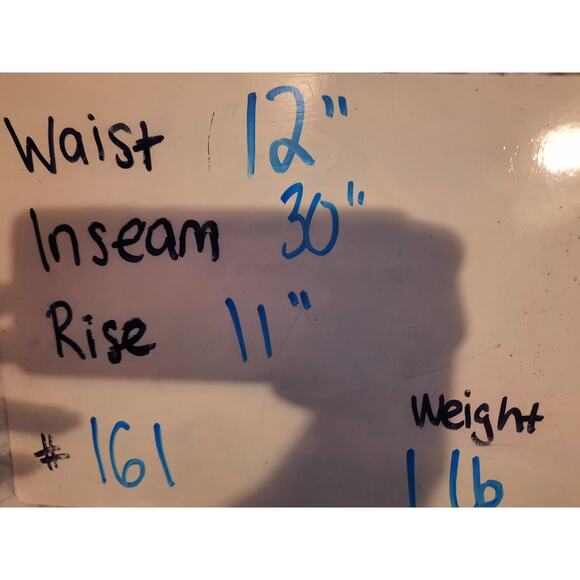 Waist 12"
Inseam 30"
Rise 11"
Weight
# 161
1 lb